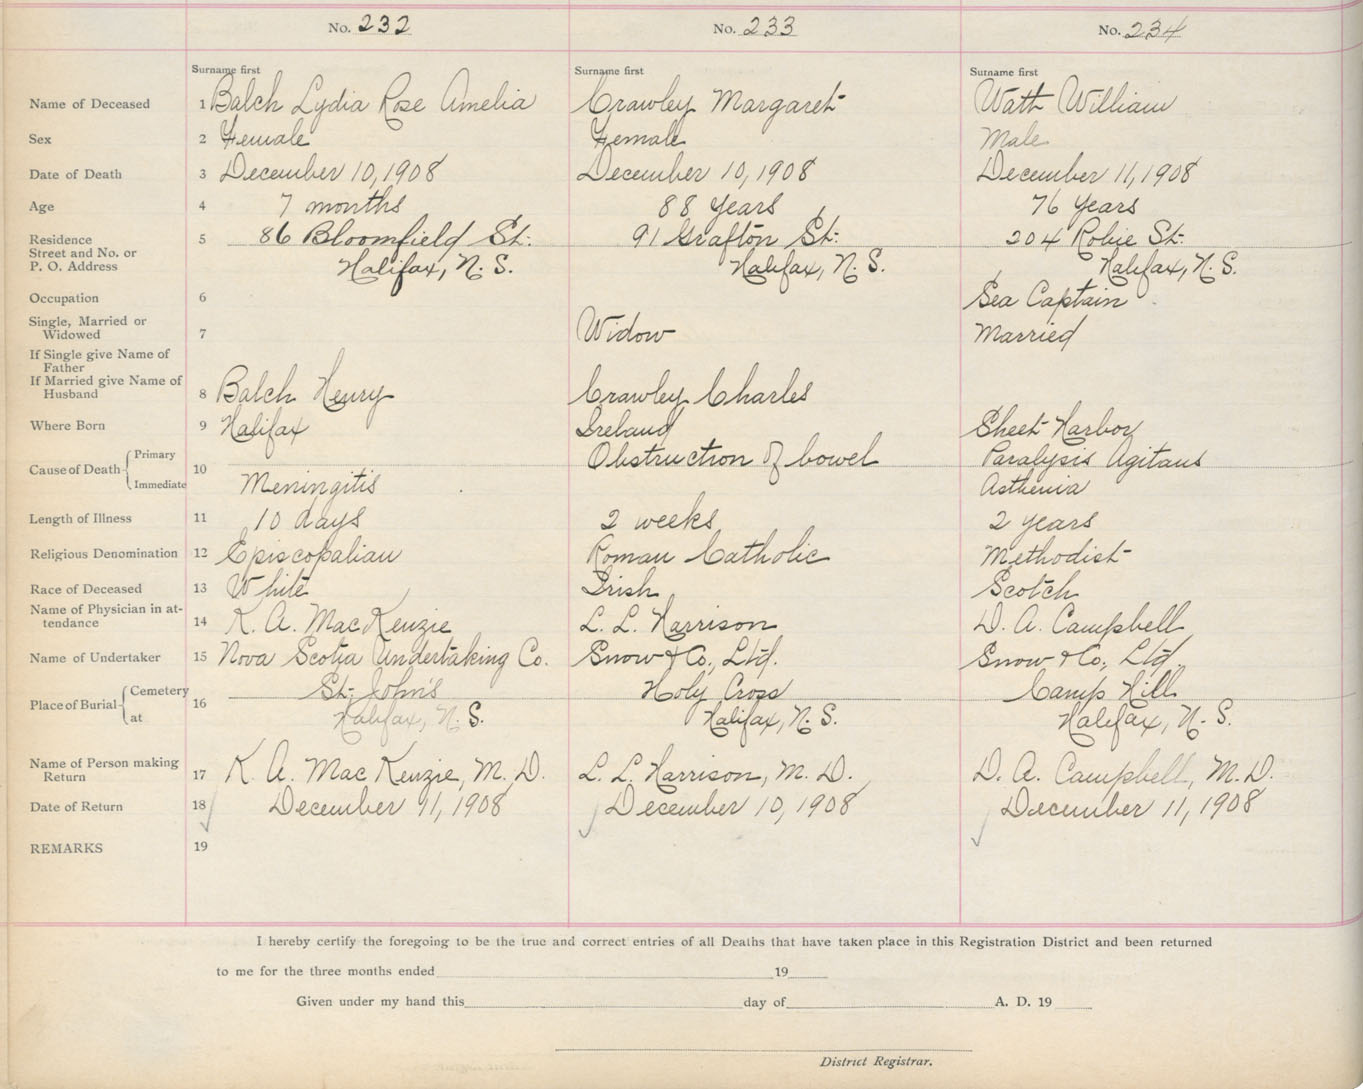 No. 232 No. 233 No. 234
Surname first Surname first Surname first
Name of Deceased 1 Balch Lydia Rose Amelia Crawley Margaret Watt William
Sex 2 Female Female Male
Date of Death 3 December 10, 1908 December 10, 1908 December 11, 1908
Age 4 7 months 88 years 76 years
Residence 5 86 Bloomfield St. 91 Grafton St. 204 Robie St.
Street and No. or
P. O. Address Halifax, N. S. Halifax, N. S. Halifax, N. S.
Occupation 6 Sea Captain
Single, Married or
Widowed 7 Widow Married
If Single give Name of
Father
If Married give Name of
Husband 8 Balch Henry Crawley Charles
Where Born 9 Halifax Ireland Sheet Harbor
Primary Obstruction of bowel Paralysis Agitans
Cause of Death 10
Immediate Meningitis Asthenia
Length of Illness 11 10 days 2 weeks 2 years
Religious Denomination 12 Episcopalian Roman Catholic Methodist
Race of Deceased 13 White Irish Scotch
Name of Physician in at-
tendance 14 K. A. MacKenzie L. L. Harrison D. A. Campbell
Name of Undertaker 15 Nova Scotia Undertaking Co. Snow & Co., Ltd. Snow & Co., Ltd.
Cemetery St. John's Holy Cross Camp Hill
Place of Burial 16
at Halifax, N. S. Halifax, N. S. Halifax, N. S.
Name of Person making
Return 17 K. A. MacKenzie, M. D. L. L. Harrison, M. D. D. A. Campbell, M. D.
Date of Return 18 December 11, 1908 December 10, 1908 December 11, 1908
REMARKS 19
I hereby certify the foregoing to be the true and correct entries of all Deaths that have taken place in this Registration District and been returned
to me for the three months ended 19
Given under my hand this day of A. D. 19
District Registrar.